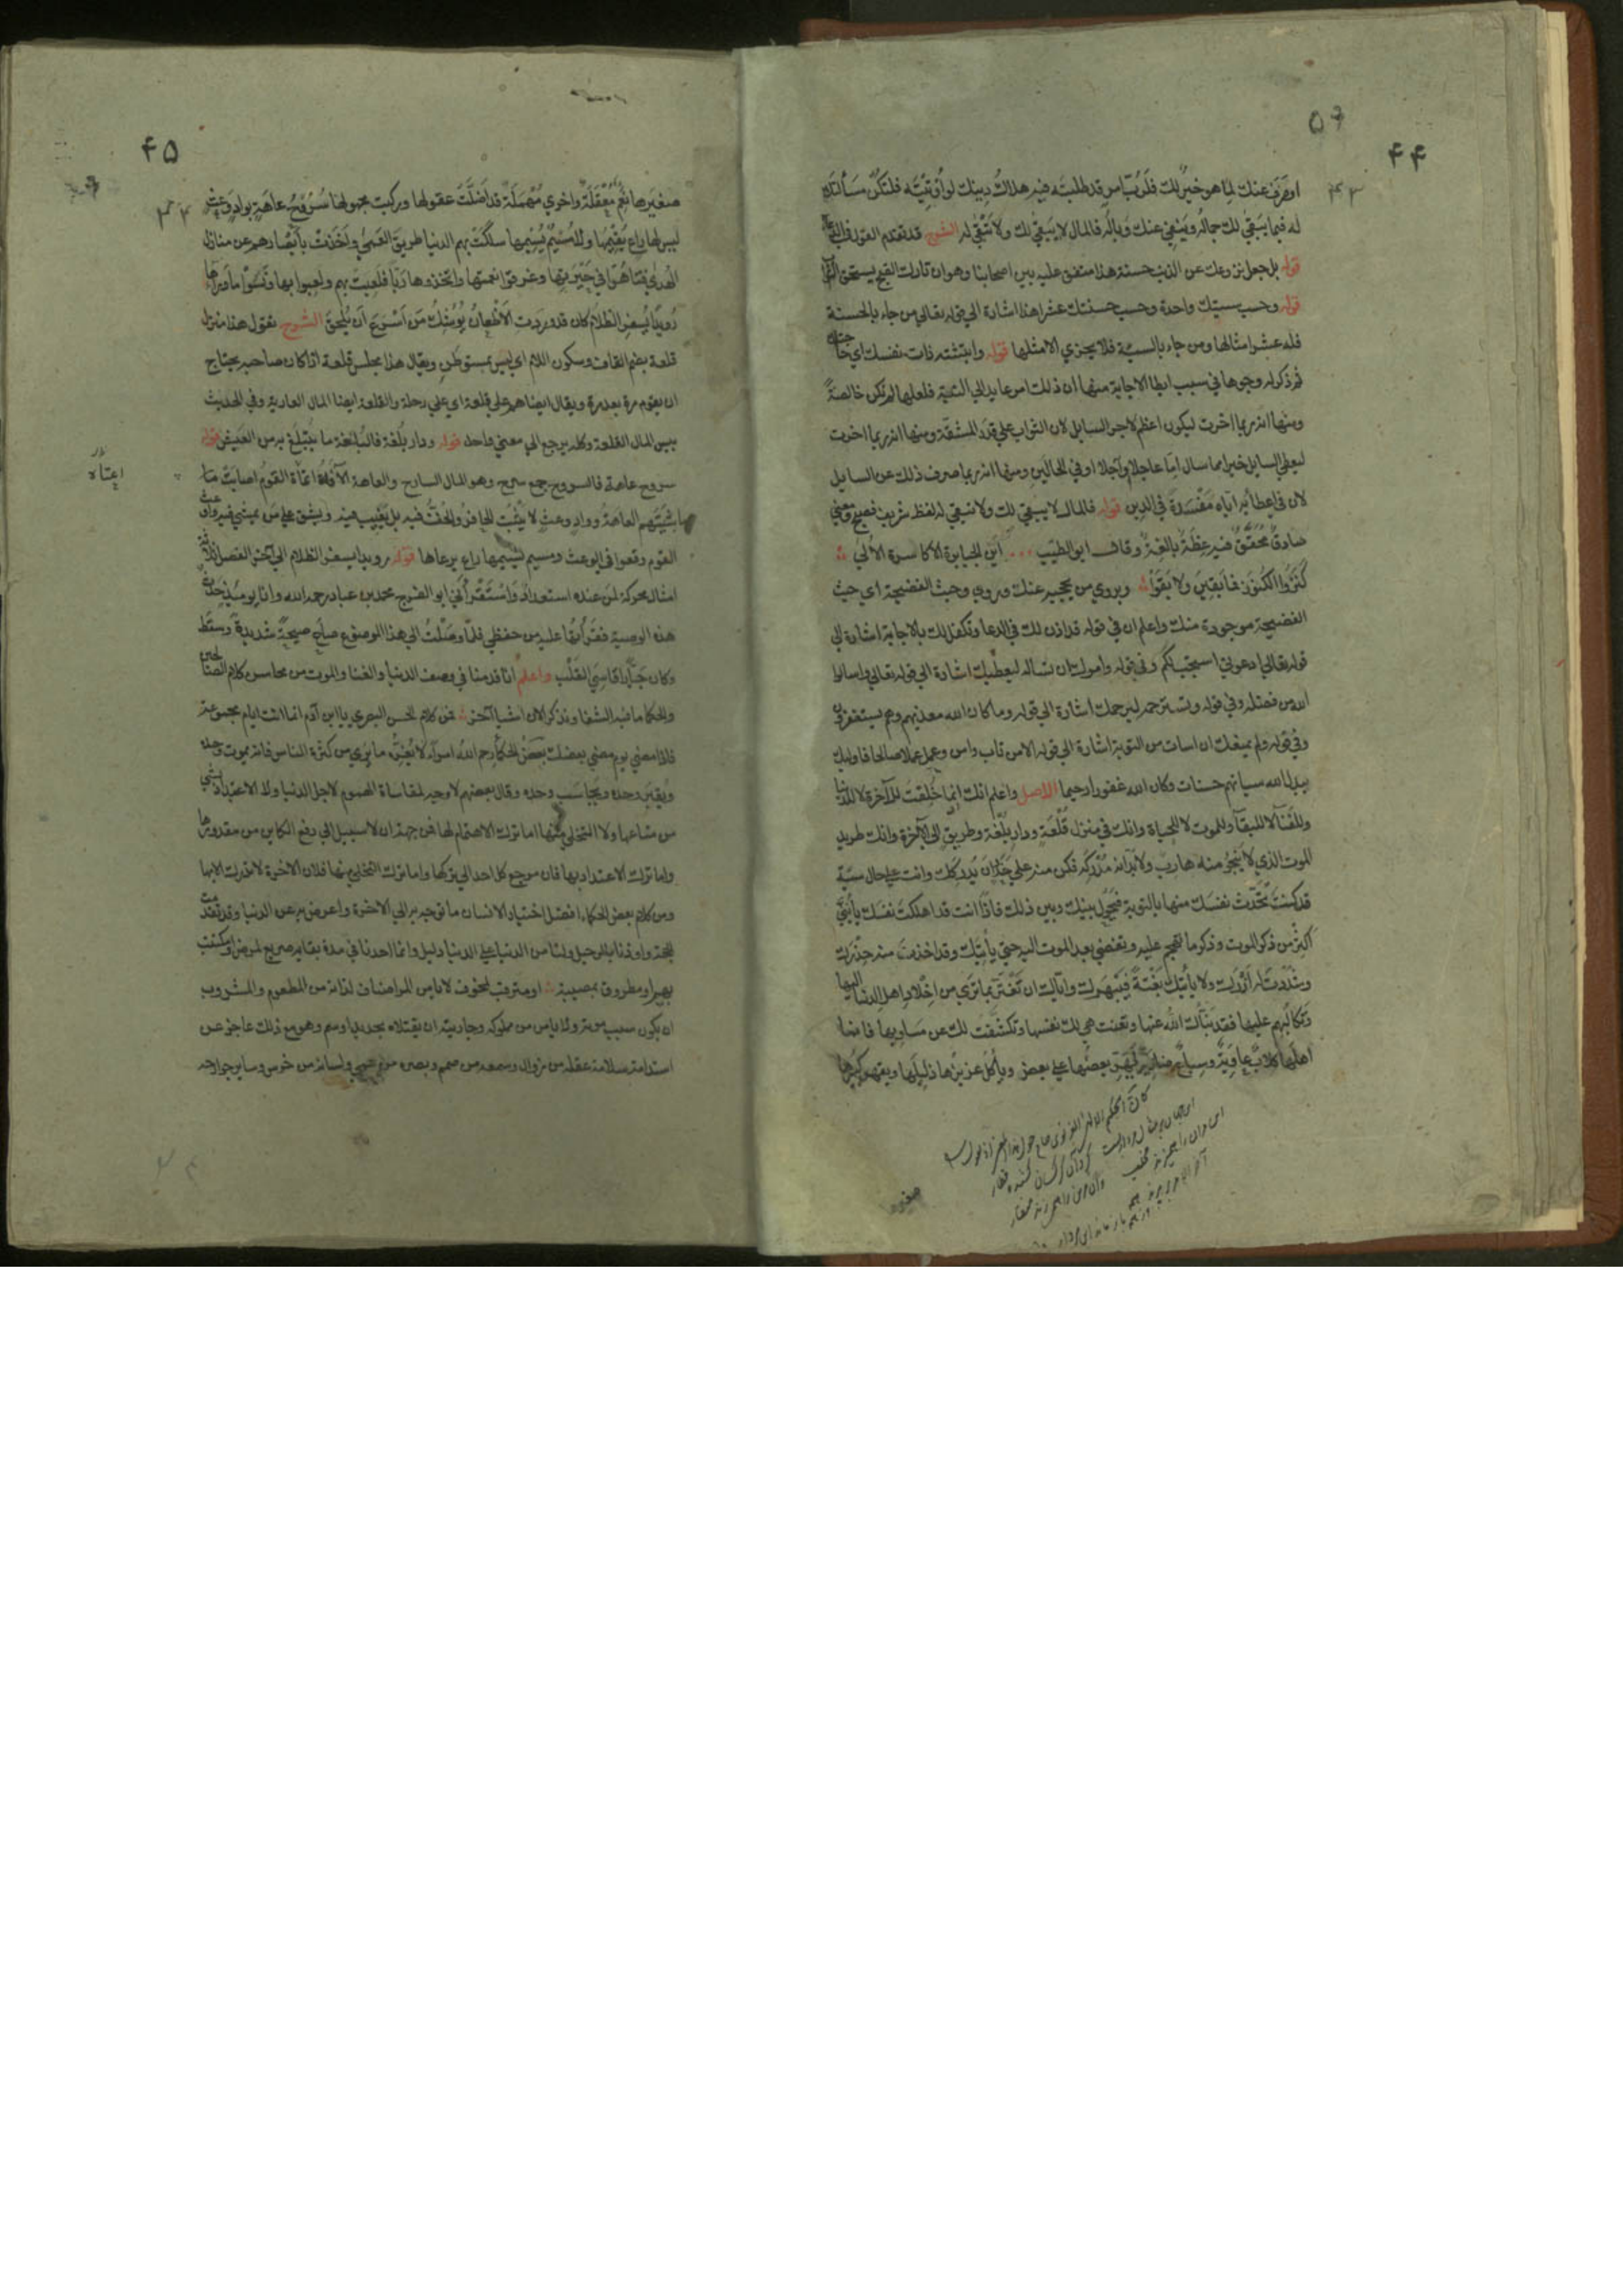 ۴۴
او صرف عنك لما هو خير لك فلرب امر قد طلبته فيه هلاك دينك لو أوتيته فلتكن مسألتك
له فيما يبقى لك جماله وينفى عنك وباله فالمال لا يبقى لك ولا تبقى له الشرح قد تقدم القول في
قوله بل جعل نزوعك عن الذنب حسنة هذا متفق عليه بين اصحابنا وهو ان تارك القبيح يستحق
قوله وحسب سيئتك واحدة وحسب حسنتك عشرا هذا اشارة الى قوله تعالى من جاء بالحسنة
فله عشر امثالها ومن جاء بالسيئة فلا يجزى الا مثلها قوله وابثثته ذات نفسك اي حاجتك
ثم ذكر له وجوها في سبب ابطا الاجابة منها ان ذلك امر عايد الى النية فلعلها لم تكن خالصة
ومنها انه ربما اخرت ليكون اعظم لاجر السايل لان الثواب على قدر المشقة ومنها انه ربما اخرت
ليعطى السايل خيرا مما سال اما عاجلا او آجلا او في الحالين ومنها انه ربما صرف ذلك عن السايل
لان في اعطائه اياه مفسدة في الدين قوله فالمال لا يبقى لك ولا تبقى له لفظ شريف فصيح ومعنى
صادق محقق فيه عظة بالغة وقال ابو الطيب اين الجبابرة الاكاسرة الألى
كنزوا الكنوز فما بقين ولا بقوا ويروى من يحجبه عنك وروى وحيث الفضيحة اي حيث
الفضيحة موجودة منك واعلم ان في قوله قد اذن لك في الدعا وتكفل لك بالاجابة اشارة الى
قوله تعالى ادعوني استجب لكم وفي قوله وامرك ان تساله ليعطيك اشارة الى قوله تعالى واسالوا
الله من فضله وفي قوله وتسترحمه ليرحمك اشارة الى قوله وما كان الله معذبهم وهم يستغفرون
وفي قوله ولم يمنعك ان اسات من التوبة اشارة الى قوله الا من تاب وامن وعمل عملا صالحا فاوليك
يبدل الله سياتهم حسنات وكان الله غفورا رحيما الاصل واعلم انك انما خلقت للآخرة لا للدنيا
وللفنآ لا للبقآ وللموت لا للحياة وانك في منزل قلعة ودار بلغة وطريق الى الآخرة وانك طريد
الموت الذي لا ينجو منه هاربه ولا بد انه مدركه فكن منه على حذر ان يدركك وانت على حال سيئة
قد كنت تحدث نفسك منها بالتوبة فيحول بينك وبين ذلك فاذا انت قد اهلكت نفسك يا بني
اكثر من ذكر الموت وذكر ما تهجم عليه وتفضي بعد الموت اليه حتى يأتيك وقد اخذت منه حذرك
وشددت له ازرك ولا يأتيك بغتة فيبهرك واياك ان تغتر بما ترى من اخلاد اهل الدنيا اليها
وتكالبهم عليها فقد نبأك الله عنها ونعت هي لك نفسها وتكشفت لك عن مساويها فانما
اهلها كلاب عاوية وسباع ضارية يهر بعضها على بعض ويأكل عزيزها ذليلها ويقهر كبيرها
۴۵
صغيرها نعم معقلة واخرى مهملة قد اضلت عقولها وركبت مجهولها سروح عاهة بواد وعث
ليس لها راع يقيمها ولا مسيم يسيمها سلكت بهم الدنيا طريق العمى واخذت بأبصارهم عن منار
الهدى فتاهوا في حيرتها وغرقوا في نعمتها واتخذوها ربا فلعبت بهم ولعبوا بها ونسوا ما وراءها
رويدا يسفر الظلام كان قد وردت الاظعان يوشك من اسرع ان يلحق الشرح تقول هذا منزل
قلعة بضم القاف وسكون اللام اي ليس بمستوطن ويقال هذا مجلس قلعة اذا كان صاحبه يحتاج
ان يقوم مرة بعد مرة ويقال ايضا هم على قلعة اي على رحلة والقلعة ايضا المال العارية وفي الحديث
بيس المال القلعة وكله يرجع الى معنى واحد قوله ودار بلغة فالبلغة ما يتبلغ به من العيش قوله
سروح عاهة فالسروح جمع سرح وهو المال السارح والعاهة الآفة اعاه القوم اصابت
ماشيتهم العاهة وواد وعث لا يثبت الحافر والخف فيه بل يغيب فيه ويشق على من يمشي فيه واوعث
القوم وقعوا في الوعث ومسيم يسيمها راع يرعاها قوله رويدا يسفر الظلام الى آخر الفصل ثلاثة
امثال محركة لمن عنده استعداد واستقرأني ابو الفرج محمد بن عباد رحمه الله وانا يوميذ حدث
هذه الوصية فقرأتها عليه من حفظي فلما وصلت الى هذا الموضع صاح صيحة شديدة وسقط
وكان جبارا قاسي القلب واعلم انا قدمنا في وصف الدنيا والفنا والموت من محاسن كلام الصالحين
والحكما ما فيه الشفا ونذكر الان اشيا آخر فمن كلام الحسن البصري يا ابن آدم انما انت ايام مجموعة
فاذا مضى يوم مضى بعضك بعض الحكما رحم الله امرأ لا يغره ما يرى من كثرة الناس فانه يموت وحده
ويقبر وحده ويحاسب وحده وقال بعضهم لا وجه لمقاساة الهموم لاجل الدنيا ولا الاعتداد بشي
من متاعها ولا التخلي منها اما ترك الاهتمام لها فمن جهة ان لا سبيل الى دفع الكاين من مقدورها
واما ترك الاعتداد بها فان مرجع كل احد الى تركها واما ترك التخلي منها فلان الاخرة لا تدرك الا بها
ومن كلام بعض الحكماء افضل اختيار الانسان ما توجه به الى الاخرة واعرض به عن الدنيا وقد تقدمت
الحجة واوذنا بالرحيل ولنا من الدنيا على الدنيا دليل وانما احدنا في مدة بقايه صريع لمرض او مكتئب
بهم او مطروق بمصيبة او مترقب لمخوف لا يامن المرء اصناف لذاته من المطعوم والمشروب
ان يكون سبب موته ولا يامن من مملوكه وجاريته ان يقتلاه بحديد او سم وهو مع ذلك عاجز عن
استدامة سلامة عقله من زوال وسمعه من صمم وبصره من عمى ولسانه من خرس وساير جوارحه